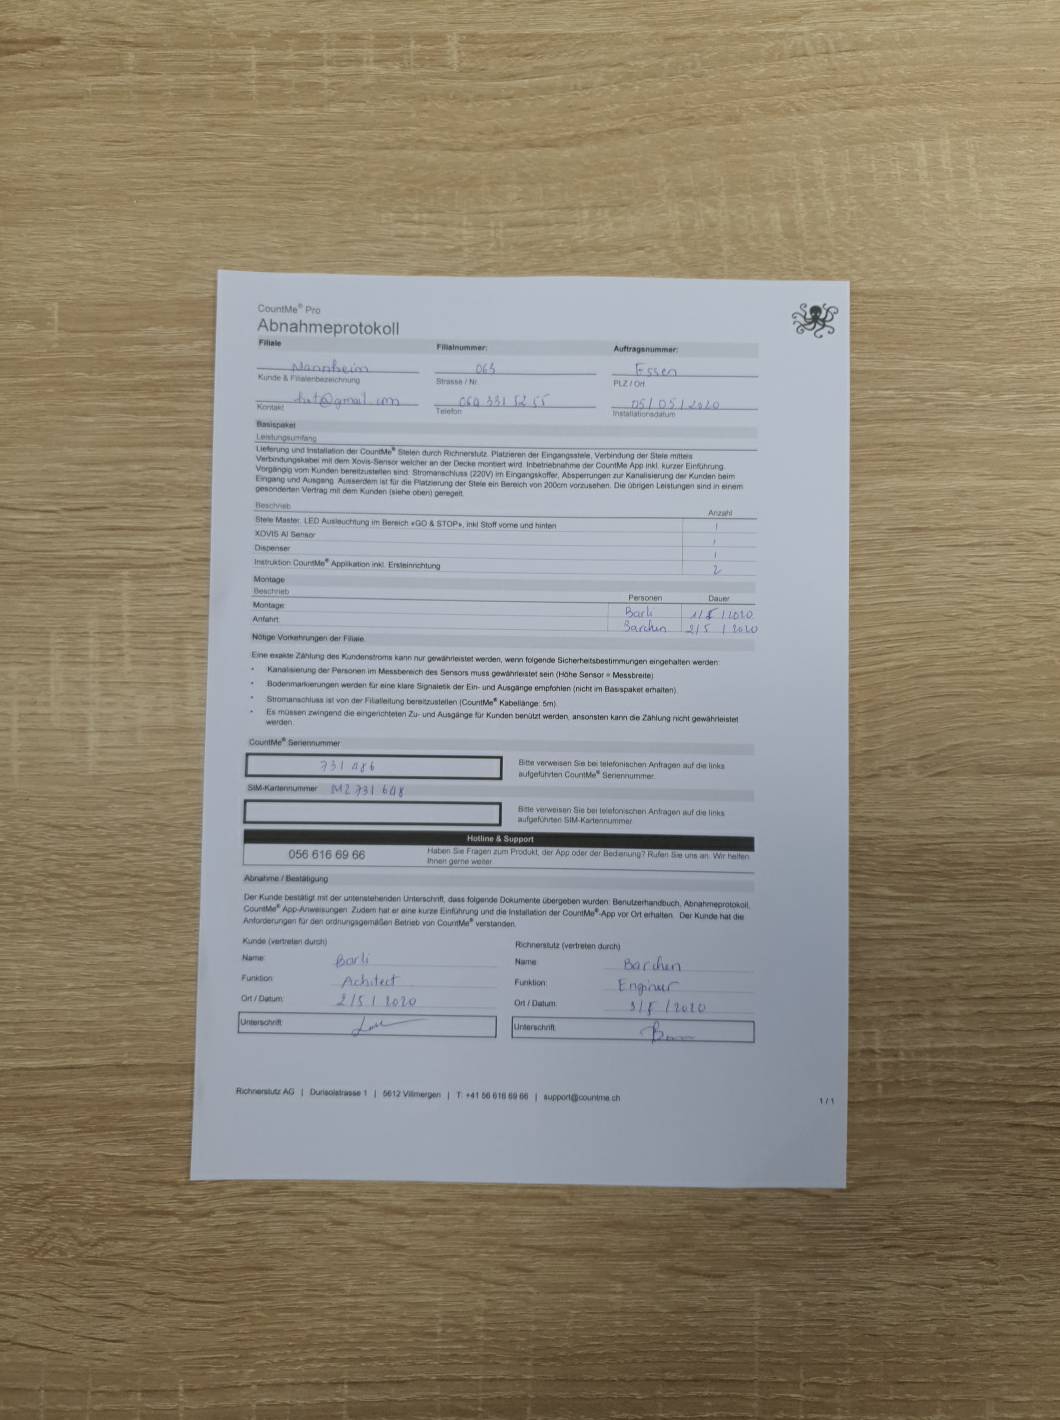 CountMe® Pro
Abnahmeprotokoll
Filiale Filialnummer: Auftragsnummer:
Mannheim 063 Essen
Kunde & Filialenbezeichnung Strasse / Nr. PLZ / Ort
@gmail.com 069 331 52 55 05/05/2020
Kontakt Telefon Installationsdatum
Basispaket
Leistungsumfang
Lieferung und Installation der CountMe® Stelen durch Richnerstutz. Platzieren der Eingangsstele, Verbindung der Stele mittels
Verbindungskabel mit dem Xovis-Sensor welcher an der Decke montiert wird. Inbetriebnahme der CountMe App inkl. kurzer Einführung.
Vorgängig vom Kunden bereitzustellen sind: Stromanschluss (220V) im Eingangskoffer, Absperrungen zur Kanalisierung der Kunden beim
Eingang und Ausgang. Ausserdem ist für die Platzierung der Stele ein Bereich von 200cm vorzusehen. Die übrigen Leistungen sind in einem
gesonderten Vertrag mit dem Kunden (siehe oben) geregelt.
Beschrieb Anzahl
Stele Master, LED Ausleuchtung im Bereich «GO & STOP», inkl Stoff vorne und hinten 1
XOVIS AI Sensor 1
Dispenser 1
Instruktion CountMe® Applikation inkl. Ersteinrichtung 2
Montage
Beschrieb Personen Dauer
Montage: Barli 1/5/2020
Anfahrt: Barchen 2/5/2020
Nötige Vorkehrungen der Filiale
Eine exakte Zählung des Kundenstroms kann nur gewährleistet werden, wenn folgende Sicherheitsbestimmungen eingehalten werden:
• Kanalisierung der Personen im Messbereich des Sensors muss gewährleistet sein (Höhe Sensor = Messbreite)
• Bodenmarkierungen werden für eine klare Signaletik der Ein- und Ausgänge empfohlen (nicht im Basispaket erhalten).
• Stromanschluss ist von der Filialleitung bereitzustellen (CountMe® Kabellänge: 5m)
• Es müssen zwingend die eingerichteten Zu- und Ausgänge für Kunden benützt werden, ansonsten kann die Zählung nicht gewährleistet
werden.
CountMe® Seriennummer
731 486 Bitte verweisen Sie bei telefonischen Anfragen auf die links
aufgeführten CountMe® Seriennummer.
SIM-Kartennummer MZ 731 648
Bitte verweisen Sie bei telefonischen Anfragen auf die links
aufgeführten SIM-Kartennummer
Hotline & Support
056 616 69 66 Haben Sie Fragen zum Produkt, der App oder der Bedienung? Rufen Sie uns an. Wir helfen
Ihnen gerne weiter.
Abnahme / Bestätigung
Der Kunde bestätigt mit der untenstehenden Unterschrift, dass folgende Dokumente übergeben wurden: Benutzerhandbuch, Abnahmeprotokoll,
CountMe® App-Anweisungen. Zudem hat er eine kurze Einführung und die Installation der CountMe®-App vor Ort erhalten. Der Kunde hat die
Anforderungen für den ordnungsgemäßen Betrieb von CountMe® verstanden.
Kunde (vertreten durch) Richnerstutz (vertreten durch)
Name: Barli Name: Barchen
Funktion: Achitect Funktion: Enginer
Ort / Datum: 2/5/2020 Ort / Datum: 3/5/2020
Unterschrift: Unterschrift:
Richnerstutz AG | Durisolstrasse 1 | 5612 Villmergen | T. +41 56 616 69 66 | support@countme.ch
1 / 1